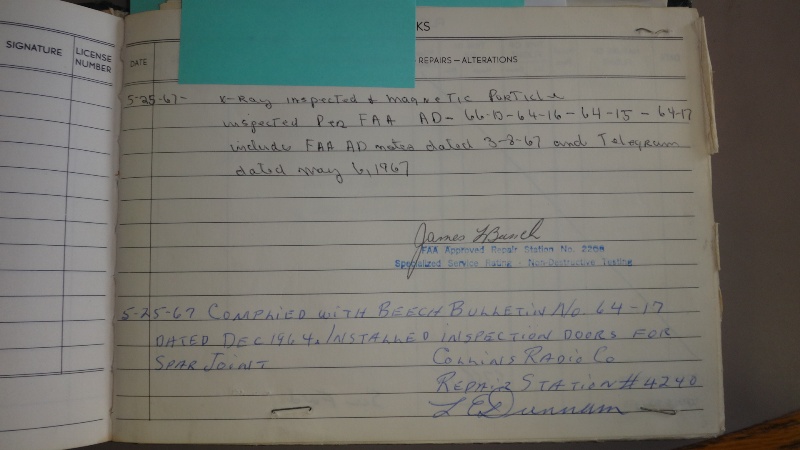 SIGNATURE
LICENSE
NUMBER
DATE
KS
REPAIRS—ALTERATIONS
5-25-67- X-Ray inspected & magnetic Particle
inspected Per FAA AD- 66-13-64-16-64-15-64-17
include FAA AD notes dated 3-8-67 and Telegram
dated May 6, 1967
James
FAA Approved Repair Station No. 2208
Specialized Service Rating - Non-Destructive Testing
5-25-67 COMPLIED WITH BEECH BULLETIN No. 64-17
DATED DEC 1964. INSTALLED INSPECTION DOORS FOR
SPAR JOINT
COLLINS RADIO Co
REPAIR STATION # 4240
L E Dunnam